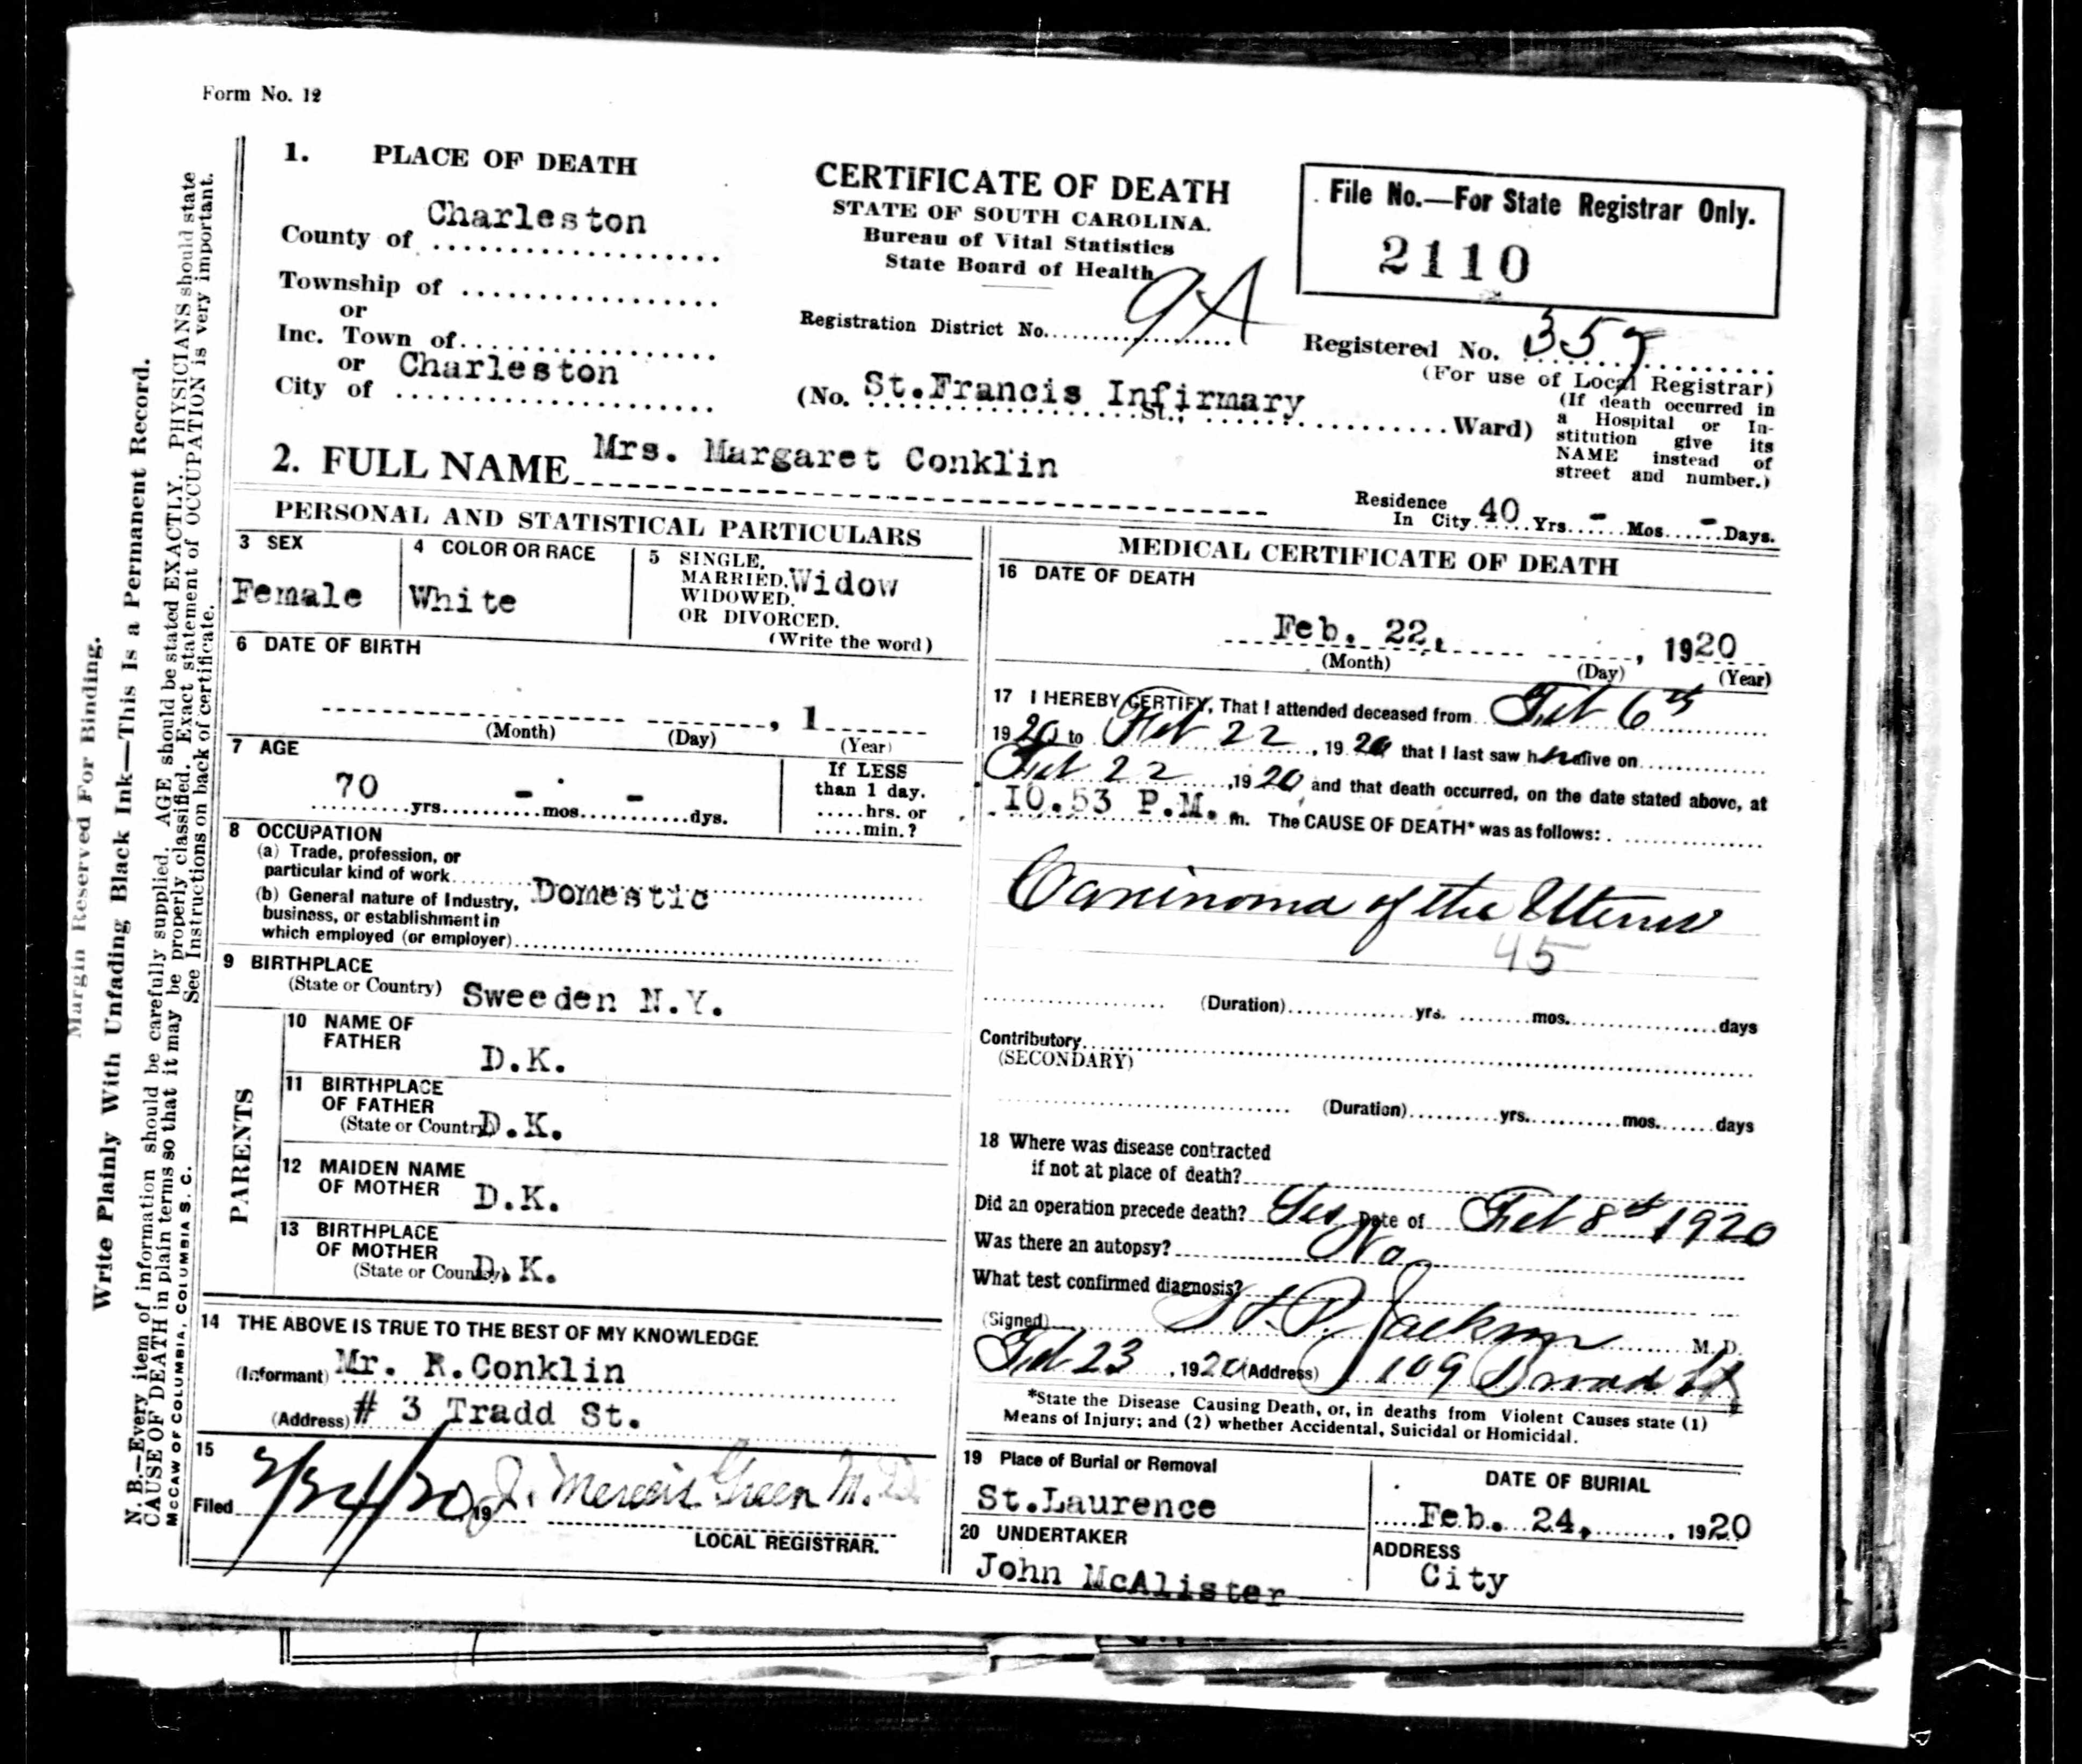 Form No. 12
1. PLACE OF DEATH
County of Charleston
Township of
or
Inc. Town of
or
City of Charleston
CERTIFICATE OF DEATH
STATE OF SOUTH CAROLINA.
Bureau of Vital Statistics
State Board of Health
Registration District No. 9A
File No.—For State Registrar Only.
2110
Registered No.
(For use of Local Registrar)
(No. St.Francis Infirmary St.; Ward)
(If death occurred in
a Hospital or In-
stitution give its
NAME instead of
street and number.)
2. FULL NAME Mrs. Margaret Conklin
Residence
In City 40 Yrs. - Mos. - Days.
PERSONAL AND STATISTICAL PARTICULARS
3 SEX
Female
4 COLOR OR RACE
White
5 SINGLE,
MARRIED, Widow
WIDOWED,
OR DIVORCED.
(Write the word)
6 DATE OF BIRTH
, 1
(Month) (Day) (Year)
7 AGE
70 yrs. - mos. - dys.
If LESS
than 1 day.
hrs. or
min.?
8 OCCUPATION
(a) Trade, profession, or
particular kind of work
(b) General nature of Industry, Domestic
business, or establishment in
which employed (or employer)
9 BIRTHPLACE
(State or Country) Sweeden N.Y.
PARENTS
10 NAME OF
FATHER D.K.
11 BIRTHPLACE
OF FATHER
(State or Country) D.K.
12 MAIDEN NAME
OF MOTHER D.K.
13 BIRTHPLACE
OF MOTHER
(State or Country) D.K.
14 THE ABOVE IS TRUE TO THE BEST OF MY KNOWLEDGE
(Informant) Mr. R.Conklin
(Address) # 3 Tradd St.
15
Filed 2/24/20 19 J. Mercier Green M.D.
LOCAL REGISTRAR.
MEDICAL CERTIFICATE OF DEATH
16 DATE OF DEATH
Feb. 22, , 1920
(Month) (Day) (Year)
17 I HEREBY CERTIFY, That I attended deceased from Feb 6th
1920 to Feb 22, 1920 that I last saw her alive on
Feb 22, 1920 and that death occurred, on the date stated above, at
10.53 P.M. m. The CAUSE OF DEATH* was as follows:
Carcinoma of the Uterus
45
(Duration) yrs. mos. days
Contributory
(SECONDARY)
(Duration) yrs. mos. days
18 Where was disease contracted
if not at place of death?
Did an operation precede death? Yes Date of Feb 8th 1920
Was there an autopsy? No
What test confirmed diagnosis?
(Signed) H.P. Jackson M.D.
Feb 23, 1920 (Address) 109 Broad St
*State the Disease Causing Death, or, in deaths from Violent Causes state (1)
Means of Injury; and (2) whether Accidental, Suicidal or Homicidal.
19 Place of Burial or Removal
St.Laurence
DATE OF BURIAL
Feb. 24, , 1920
20 UNDERTAKER
John McAlister
ADDRESS
City
Margin Reserved For Binding.
Write Plainly With Unfading Black Ink—This Is a Permanent Record.
N. B.—Every item of information should be carefully supplied. AGE should be stated EXACTLY. PHYSICIANS should state
CAUSE OF DEATH in plain terms so that it may be properly classified. Exact statement of OCCUPATION is very important.
See Instructions on back of certificate.
McCAW OF COLUMBIA, COLUMBIA S. C.